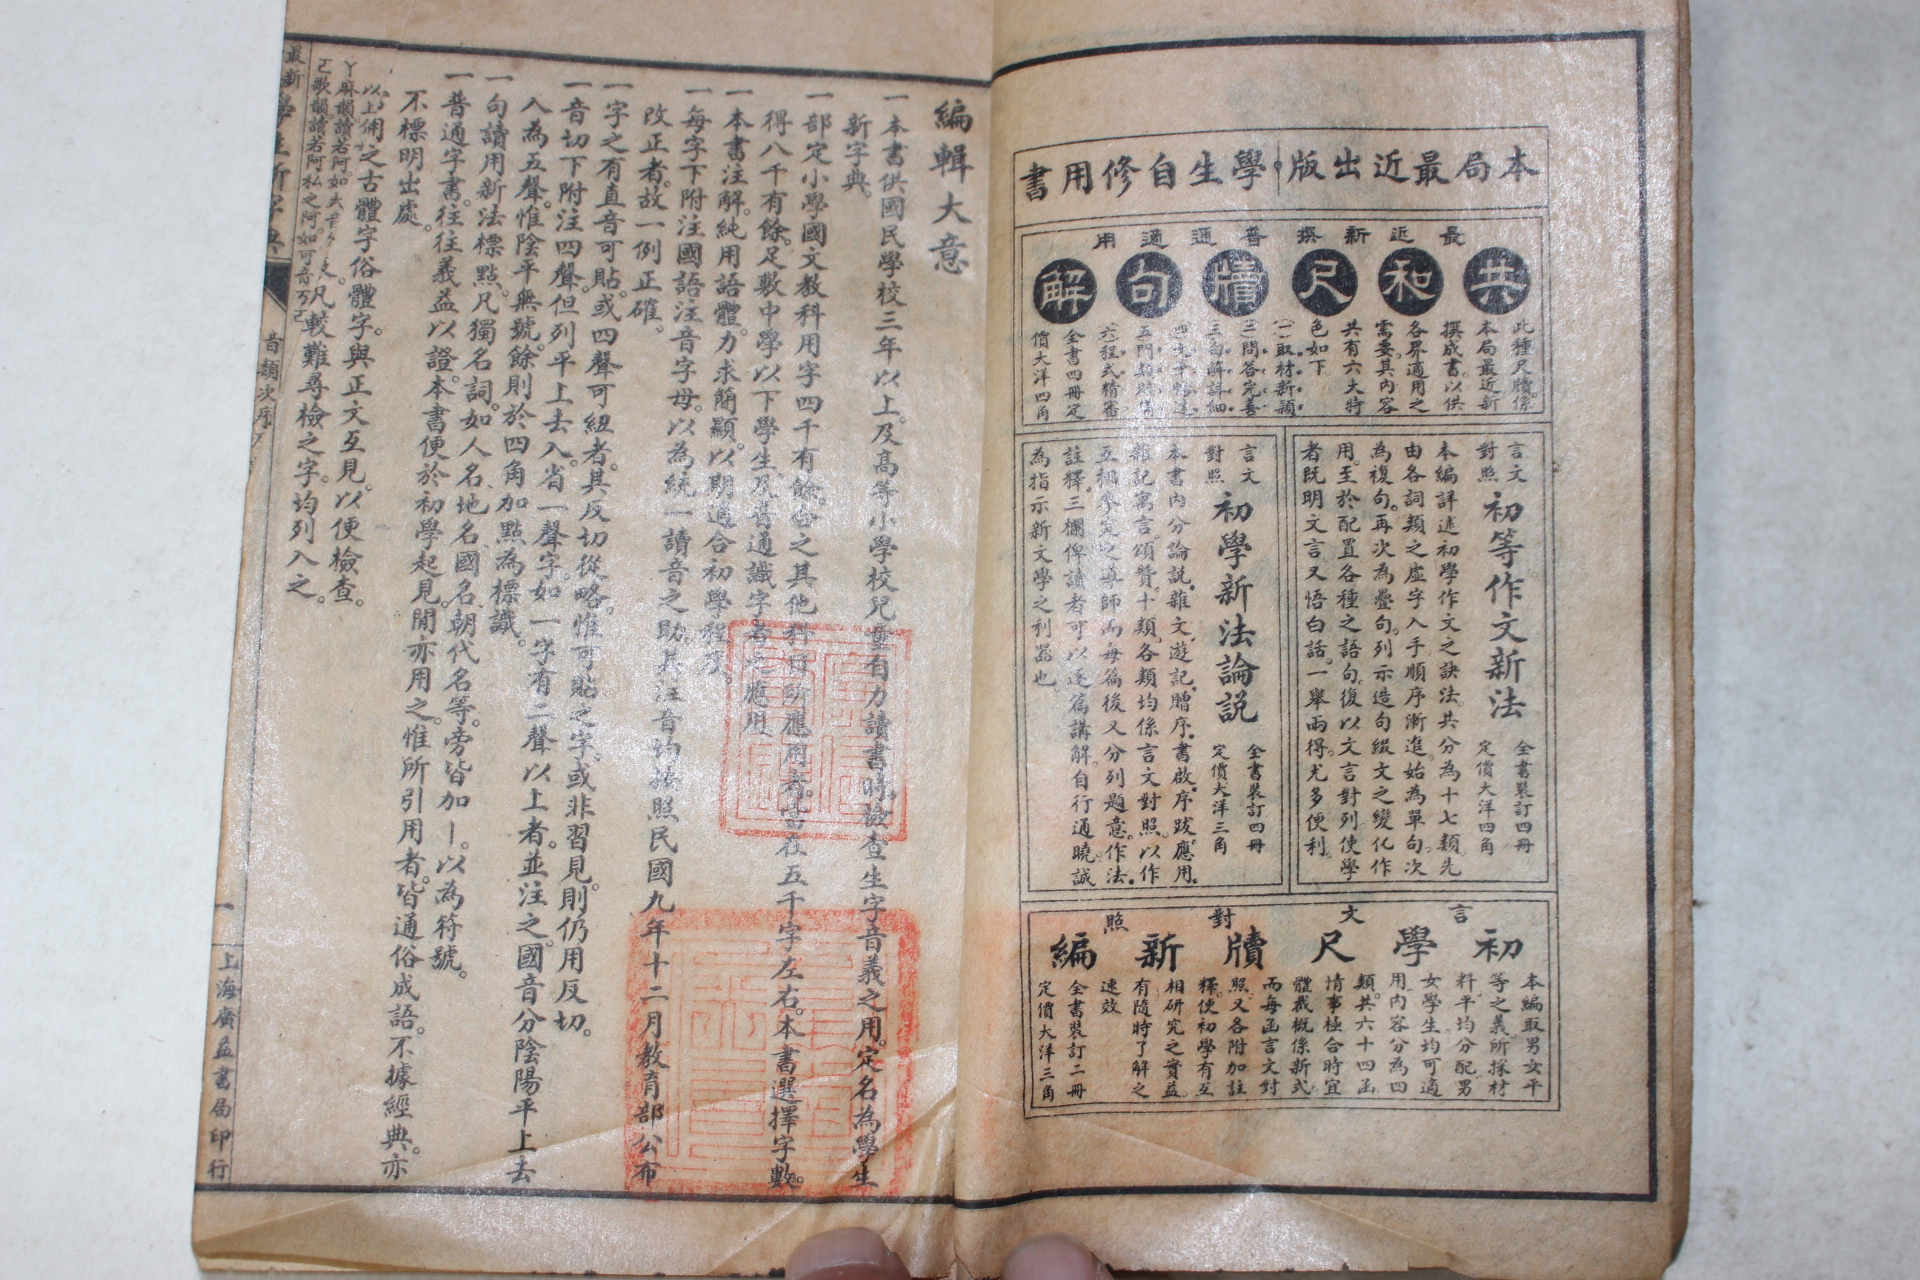 本局最近出版學生自修用書
最近新撰普通適用
共和尺牘句解
此種尺牘係
本局最近新
撰成書以供
各界適用之
需要其內容
共有六大特
色如下
(一)取材新穎
三問答完善
三句解詳細
五門類賅備
六程式精審
全書四冊定
價大洋四角
言文對照
初等作文新法
全書裝訂四冊
定價大洋四角
本編詳述初學作文之訣法共分為十七類先
由各詞類之虛字入手順序漸進始為單句次
為複句再次為疊句列示造句綴文之變化作
用至於配置各種之語句復以文言對列使學
者既明文言又悟白話一舉兩得尤多便利
言文對照
初學新法論說
全書裝訂四冊
定價大洋三角
本書內分論說雜文遊記贈序書啟序跋應用
雜記寓言頌贊十類各類均係言文對照以作
文之導師而每篇後又分列題意作法
註釋三欄俾讀者可以逐篇講解自行通曉誠
為指示新文學之利器也
言文對照
初學尺牘新編
本編取男女平
等之義所採材
料平均分配男
女學生均可適
用內容分為四
類共六十四函
情事極合時宜
體裁概係新式
而每函言文對
照又各附加註
釋使初學有互
相研究之實益
有隨時了解之
速效
全書裝訂二冊
定價大洋三角
編輯大意
一本書供國民學校三年以上及高等小學校兒童自力讀書時檢查生字音義之用定名為學生
新字典
一部定小學國文教科用字四千有餘合之其他科目所應用者當在五千字左右本書選擇字數
得八千有餘足數中學以下學生及普通識字者之應用
一本書注解純用語體力求簡顯以期適合初學程度
一每字下附注國語注音字母以為統一讀音之助其注音均按照民國九年十二月教育部公布
改正者故一例正確
一字之有直音可貼或四聲可紐者其反切從略惟可貼之字或非習見則仍用反切
一音切下附注四聲但列平上去入省一聲字如一字有二聲以上者並注之國音分陰陽平上去
入為五聲惟陰平無號餘則於四角加點為標識
一句讀用新法標點凡獨名詞如人名地名國名朝代名等旁皆加丨以為符號
一普通字書往往義益以證本書便於初學起見間亦用之惟所引用者皆通俗成語不據經典亦
不標明出處
以上倂之古體字俗體字與正文互見以便檢查
ㄚ麻韻讀若阿如大
ㄛ歌韻讀若阿私之阿如可音ㄎㄛ
凡較難尋檢之字均列入之
最新學生新字典
音類次序
一
上海廣益書局印行